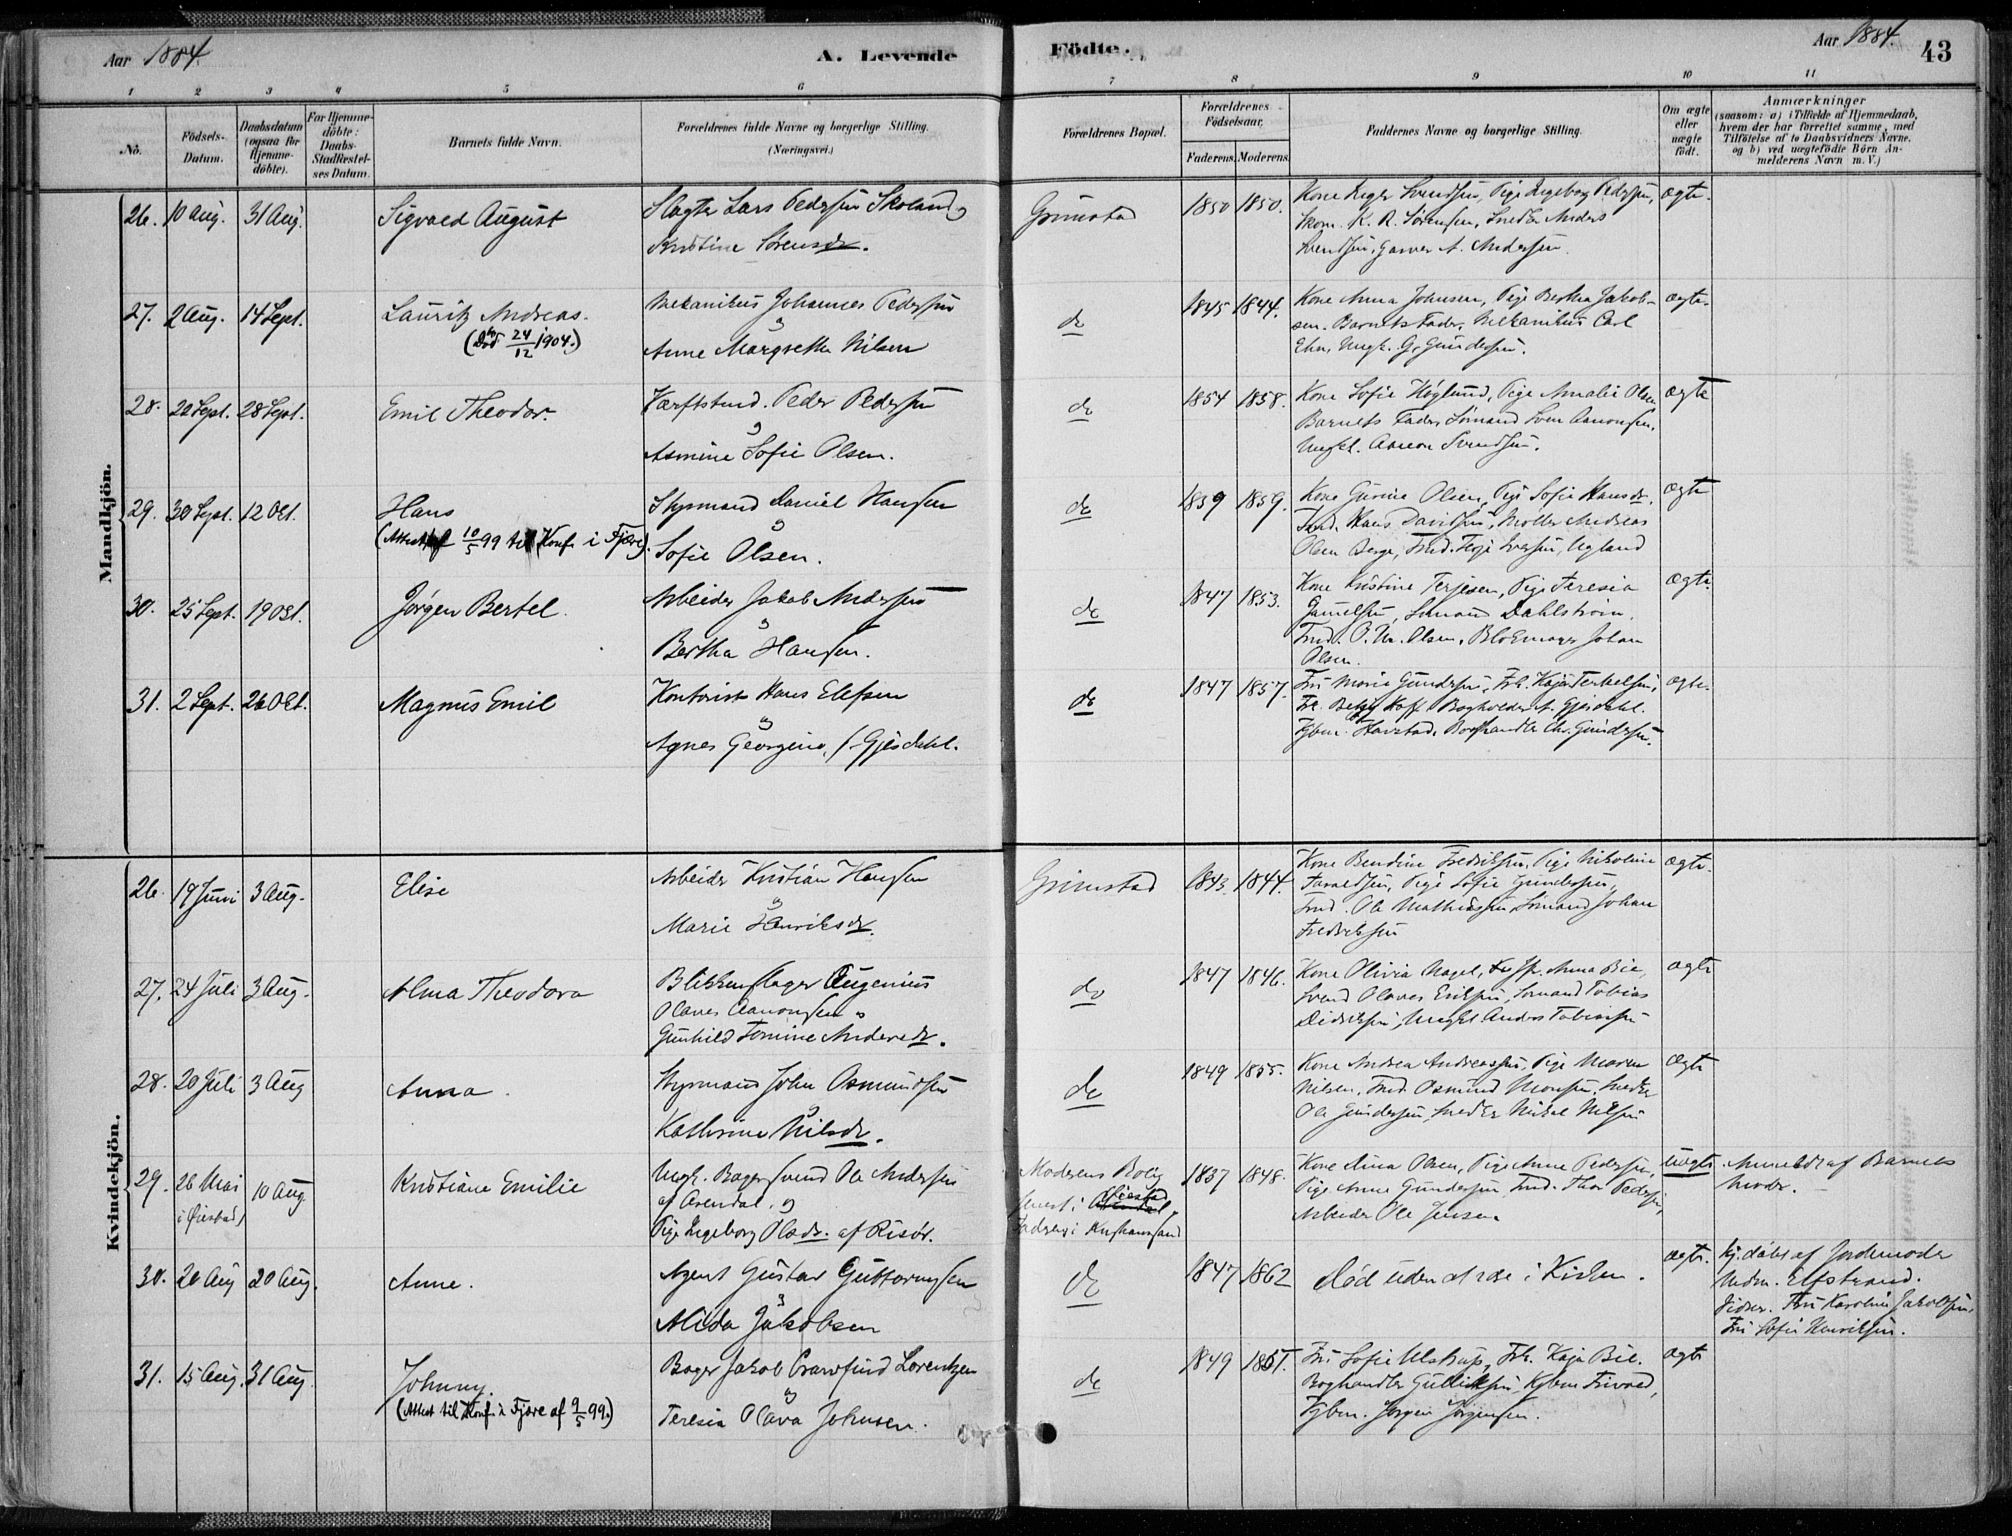 Aar 1884.
A. Levende
Födte.
Aar 1884.
43
1 2 3 4 5 6 7 8 9 10 11
No.
Födsels-
Datum.
Daabsdatum
(ogsaa for
Hjemme-
döbte).
For Hjemme-
döbte:
Daabs-
Stadfæstel-
ses Datum.
Barnets fulde Navn.
Forældrenes fulde Navne og borgerlige Stilling.
(Næringsvei.)
Forældrenes Bopæl.
Forældrenes
Födselsaar.
Faderens. Moderens.
Faddernes Navne og borgerlige Stilling.
Om ægte
eller
uægte
födt.
Anmærkninger
(saasom: a) i Tilfælde af Hjemmedaab,
hvem der har forrettet samme, med
Tilföielse af to Daabsvidners Navne.
og b) ved uægtefödte Börn An-
melderens Navn m. V.)
Mandkjön.
26. 10 Aug. 31 Aug.
Sigvald August
Slagter Lars Pedersen Skoland og
Kristine Sørensdr.
Grimstad
1850 1850.
Kone Inger Svendsen, Pige Ingeborg Pedersen,
Skom. K. R. Sørensen, Snedk. Anders
Svendsen, Garver A. Andersen.
ægte.
27. 2 Aug. 14 Sept.
Lauritz Andreas.
(Død 24/12 1904.)
Mekanikus Johannes Pedersen
o
Anne Margrethe Nilsen
do
1845 1844.
Kone Anna Johnsen, Pige Berthea Jakob-
sen. Barnets Fader, Mekanikus Carl
Ungk. G. Gundersen.
ægte.
28. 22 Sept. 28 Sept.
Emil Theodor.
Værftstmd. Peder Pedersen
o
Asmine Sofie Olsen.
do
1854 1858.
Kone Sofie Høglund, Pige Amalie Olsen
Barnets Fader, Sømand Sven Aanonsen,
Ungkl. Aanon Svendsen.
ægte
29. 30 Sept. 12 Oct.
Hans
(Attest af 10/5 99 til Konf. i Fjære).
Styrmand Daniel Hansen
o
Sofie Olsen.
do
1859 1859.
Kone Gurine Olsen, Pige Sofie Hansdr.
Tmd. Hans Davidsen, Møller Andreas
Olsen Berge, Tmd. Terje Iversen, Ugland
ægte
30. 25 Sept. 19 Oct.
Jørgen Bertel.
Arbeider Jakob Andersen
o
Bertha Hansen.
do
1847 1853.
Kone Kristine Terjesen, Pige Teresia
Gamelsen, Sømand Dahlstrøm,
Tmd. O. M. Olsen, Blokmager Johan
Olsen.
ægte.
31. 2 Sept. 26 Oct.
Magnus Emil
Kontorist Hans Elefsen
o
Agnes Georgine, f. Gjesdahl.
do
1847 1857.
Fru Marie Gundersen, Frk. Kaja Terkelsen,
Frk. Betzy Hoff. Bogholder A. Gjesdahl.
Kjbm. Havstad, Boghandler Chr. Gundersen.
ægte.
Kvindekjön.
26. 19 Juni 3 Aug.
Elise
Arbeider Kristian Hansen
o
Marie Henriksdr.
Grimstad
1843. 1844.
Kone Bendine Fredriksen, Pige Nikoline
Taraldsen, Pige Sofie Gundersen,
Tmd. Ole Mathiassen, Sømand Johan
Fredriksen
ægte.
27. 24 Juli 3 Aug.
Alma Theodora
Blikkenslager Eugenius
Olaves Aanonsen o
Gunhild Tomine Andersdr.
do
1847 1846.
Kone Olivia Nagel, Anna Bie,
Svend Olaves Eriksen, Sømand Tobias
Didriksen, Ungkl. Anders Tobiassen
ægte
28. 20 Juli 3 Aug
Anna.
Styrmand John Osmundsen
o
Kathrine Nilsdr.
do
1849 1855.
Kone Andrea Andreassen, Pige Maren
Nilsen, Tmd. Osmund Monsen, Snedker
Ole Gundersen, Snedker Mikel Nilsen
ægte
29. 26 Mai
i Øiestad,
10 Aug.
Kristiane Emilie
Ungk. Bagersvend Ole Andersen
af Arendal, og
Pige Ingeborg Olsdr. af Risør.
Moderens Bolig
senest i Øiestad,
Faderens i Kristianssand
1837 1848.
Kone Lina Olsen, Pige Anne Pedersen,
Pige Anne Gundersen, Tmd. Thor Pedersen,
Arbeider Ole Jensen
uægte
Anmeldt af Barnets
Moder.
30. 20 Aug 20 Aug.
Anne.
Agent Gustav Guttormsen
o
Alida Jakobsen
do
1847 1862
Død uden at være i Kirken.
ægte.
Hj. døbt af Jordemoder
Mdm. Elfstrand.
Vidner. Fru Karoline Jakobsen,
Fru Sofie Henriksen.
31. 15 Aug. 31 Aug.
Johnny.
(Attest til Konf. i Fjære af 9/5 99.)
Bager Jakob Crawfurd Lorentzen
o
Teresia Olava Johnsen.
do
1849 1851.
Fru Sofie Ulstrup, Frk. Kaja Bie.
Boghandler Gulliksen, Kjbm. Trivold,
Kjbm. Jørgen Jørgensen.
ægte